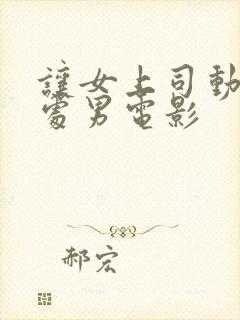 讓女上司動
處男電影
郝宏